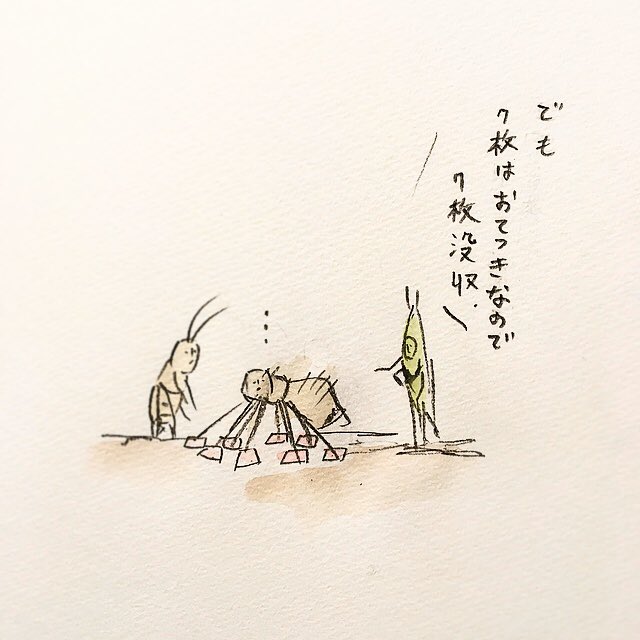 でも
7枚はおてつきなので
7枚没収.
…